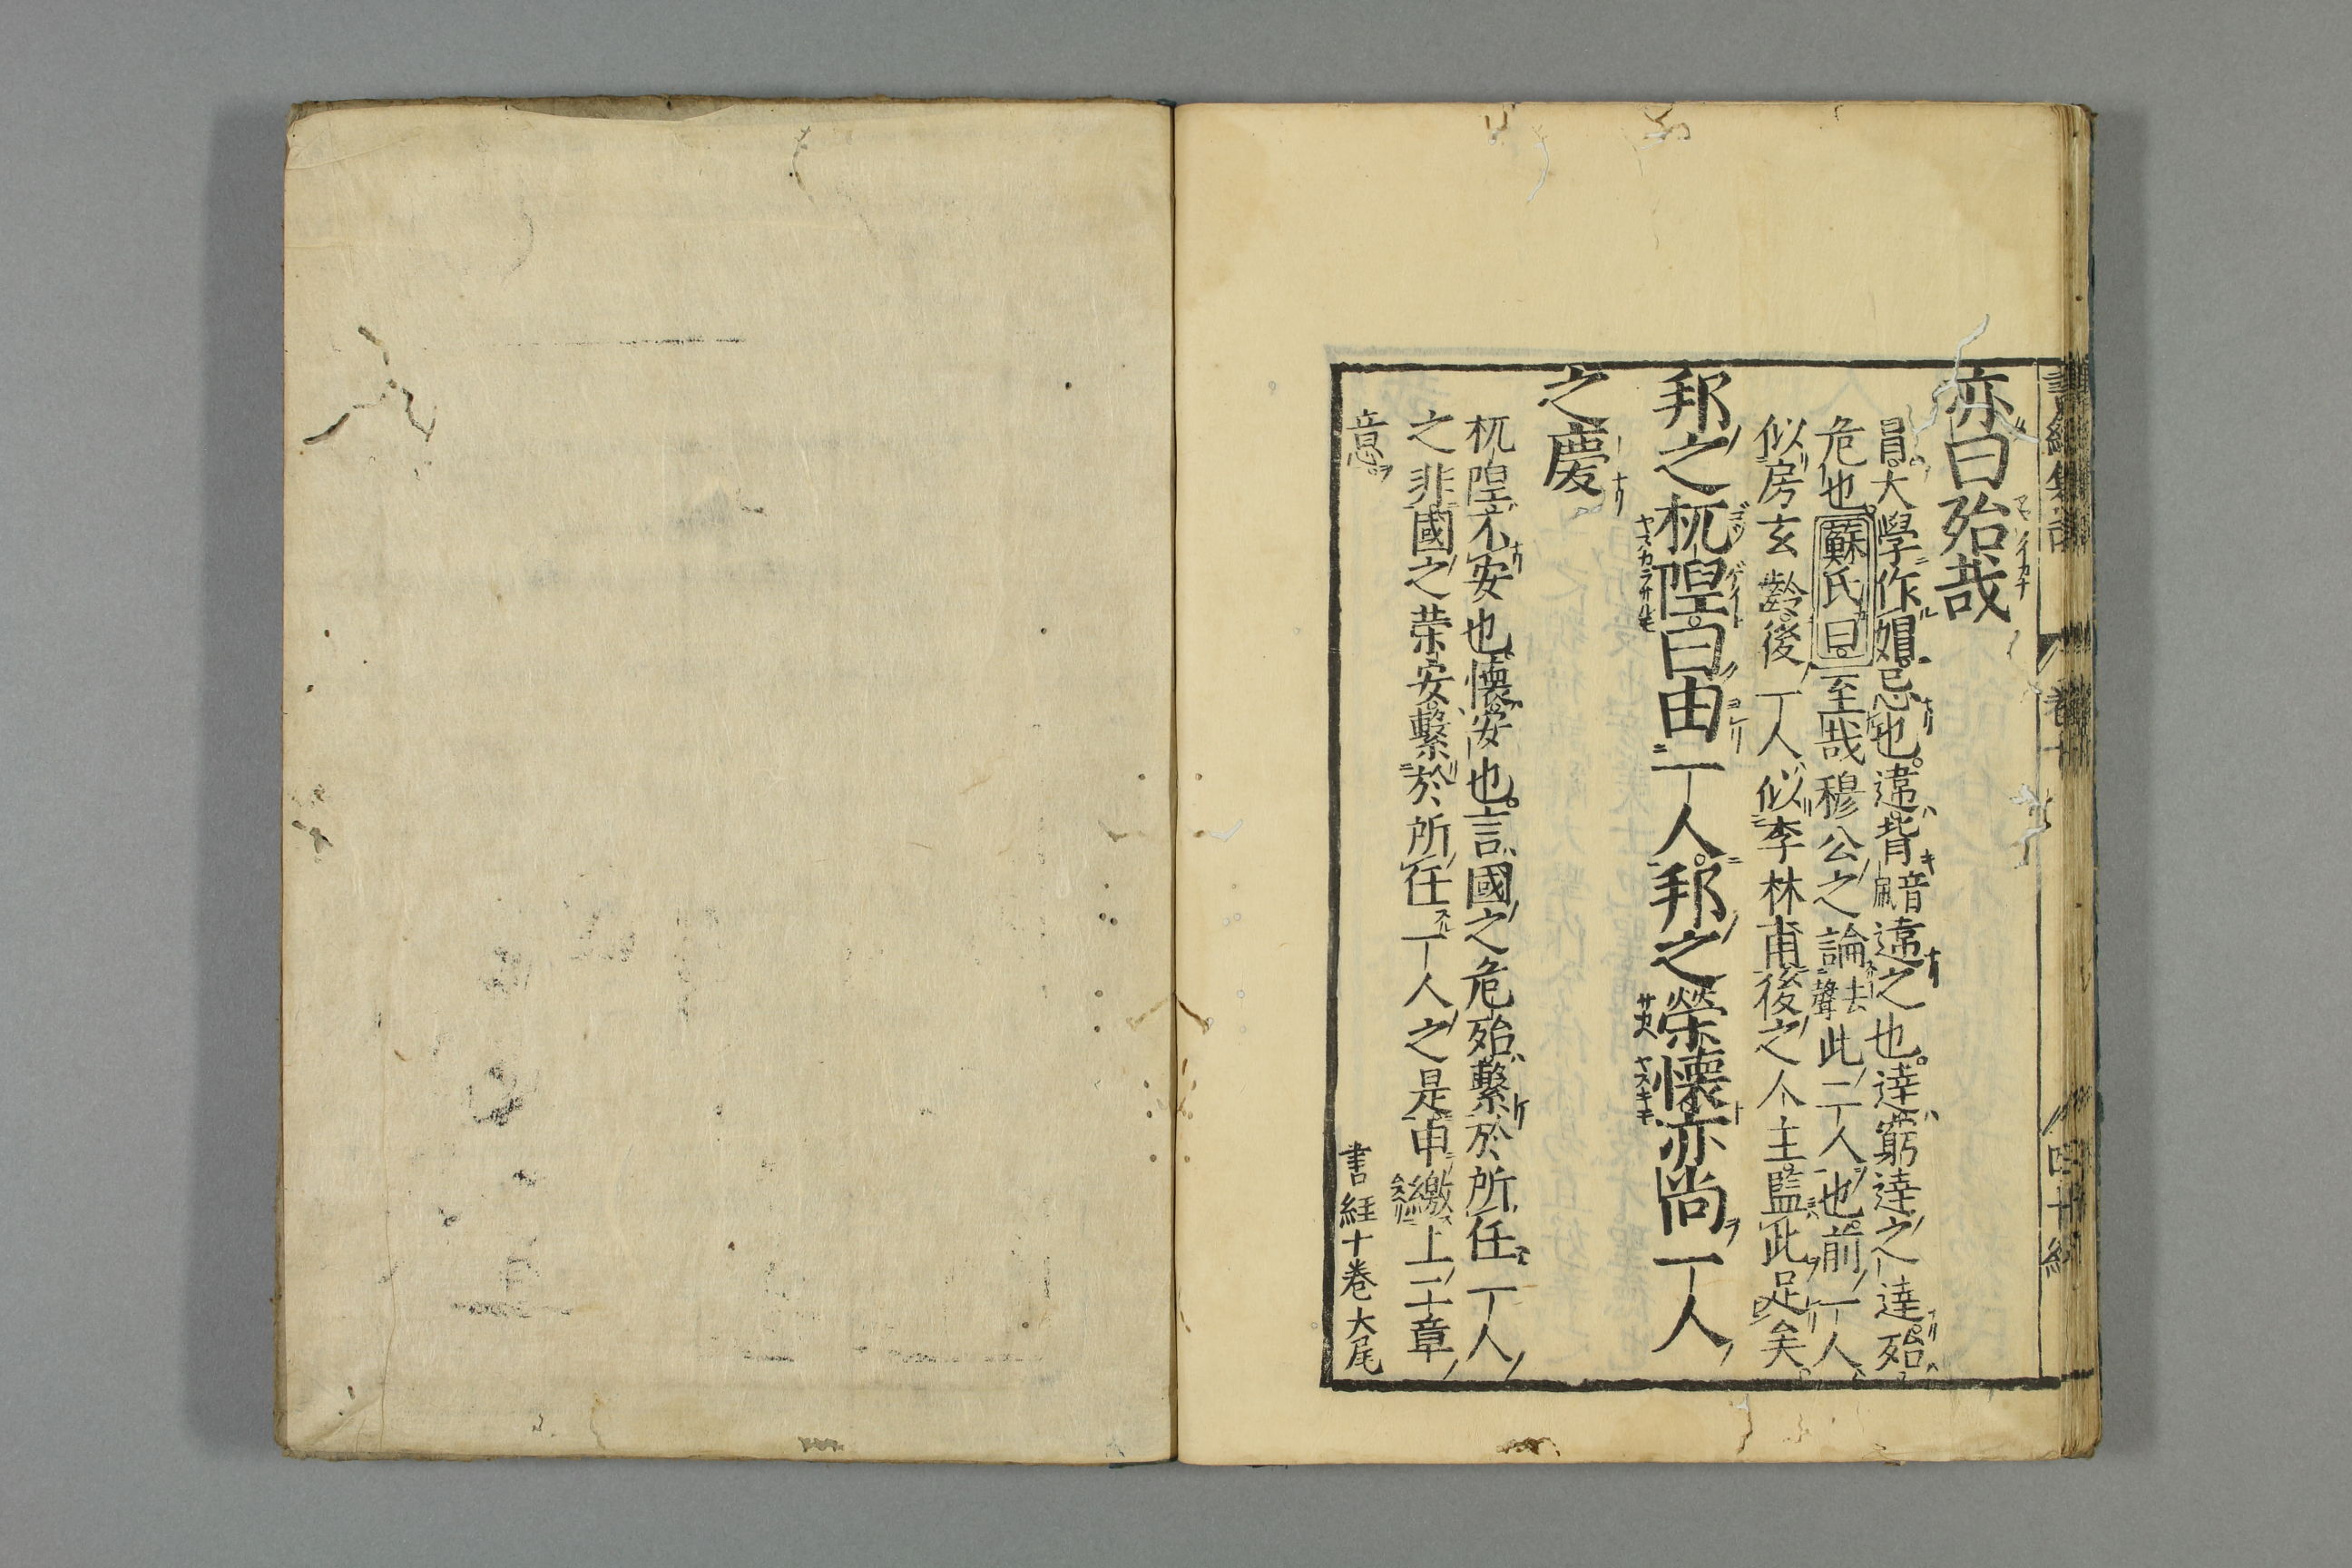 亦曰殆哉
冒大學作媢忌也違背音佩違之也逹窮逹之逹殆
危也蘇氏曰至哉穆公之論去聲此二人也前一人
似房玄齡後一人似李林甫後之人主監此足矣
邦之杌隉曰由一人邦之榮懷亦尚一人
之慶
杌隉不安也懷安也言國之危殆繫於所任一人
之非國之荣安繫於所任一人之是申繳上二章
意
書経十巻大尾